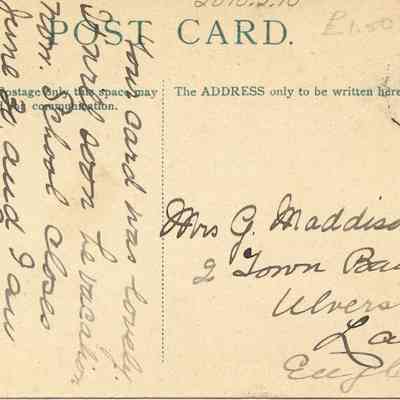 2010.2.10
£1.50
POST CARD.
Postage only this space may
for communication.
The ADDRESS only to be written here
Your card was lovely.
will soon be vacation
School closes
June 30, and I am
Mrs G. Maddiso
2 Town Ba
Ulvers
La
Engl